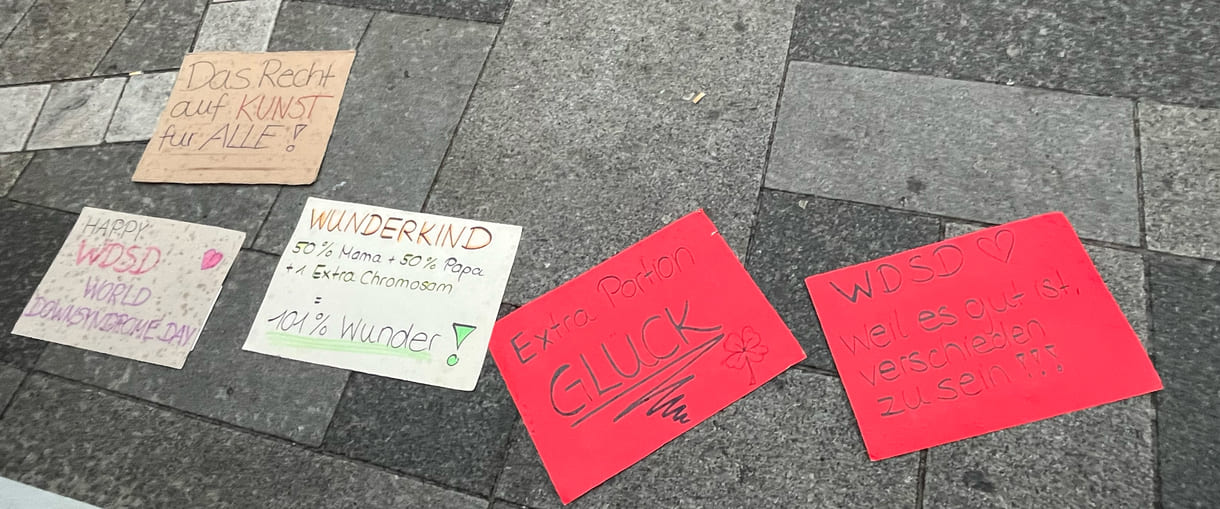 Das Recht
auf KUNST
für ALLE!
HAPPY
WDSD
WORLD
DOWNSYNDROME DAY
WUNDERKIND
50% Mama + 50% Papa
+ 1 Extra Chromosam
=
101% Wunder!
Extra Portion
GLÜCK
WDSD
weil es gut ist,
verschieden
zu sein!!!